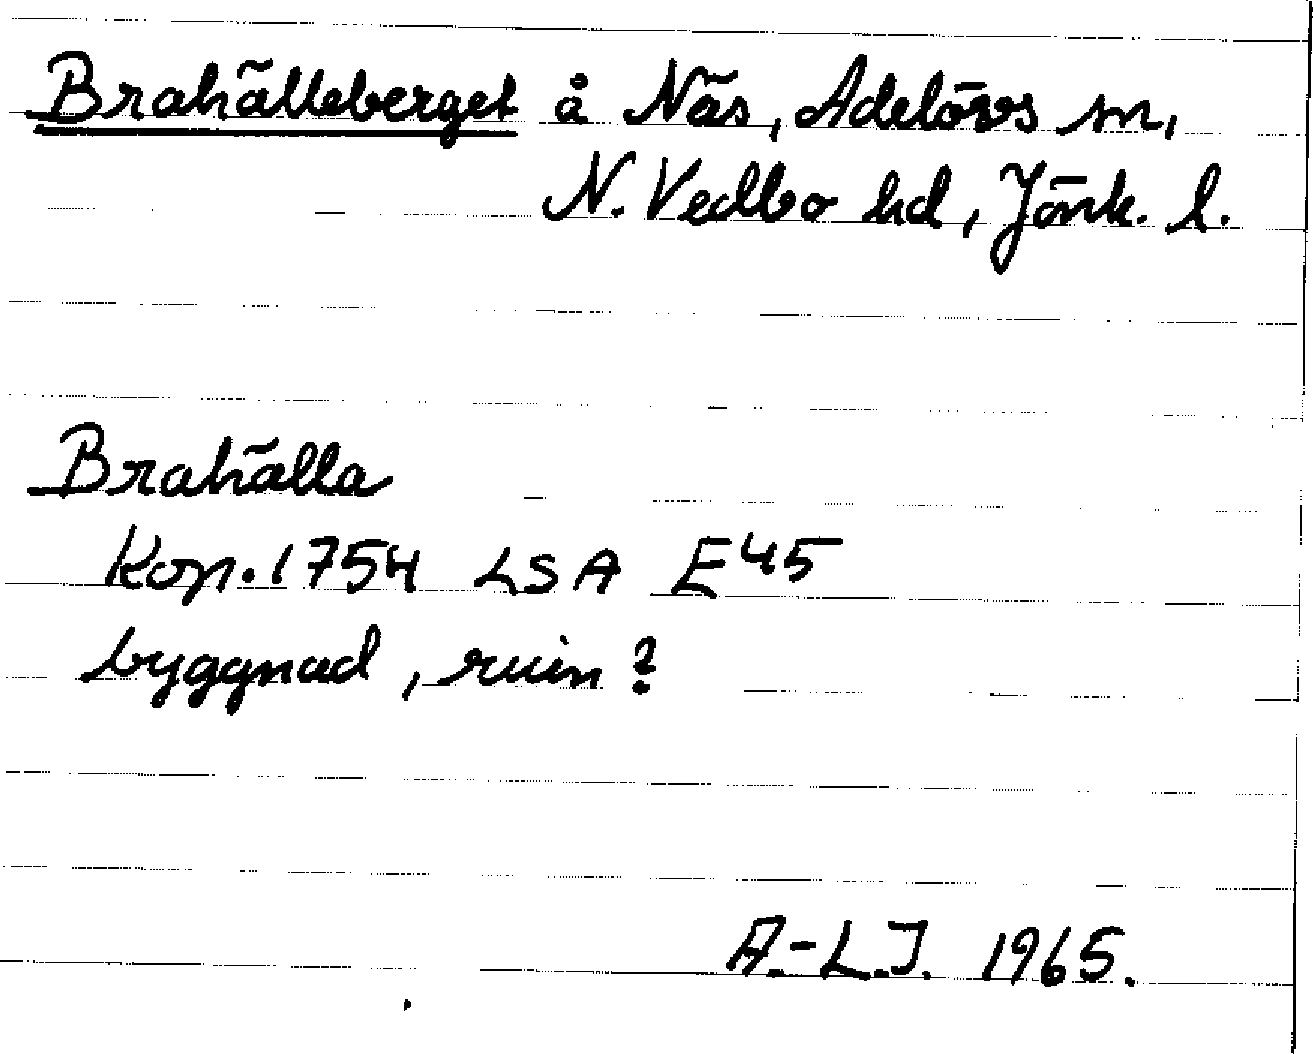 Brahälleberget å Näs, Adelövs sn,
N. Vedbo hd, Jönk. l.
Brahälla
Kop. 1754 LSA E45
byggnad, ruin?
A.-L.J. 1965.